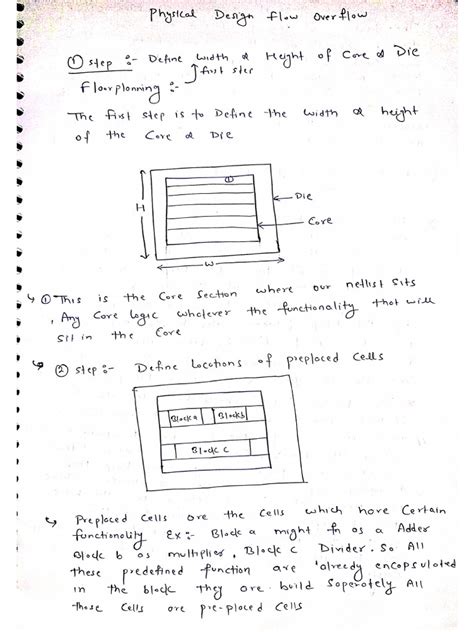 Physical Design flow Overflow
① Step :- Define width & Height of Core & Die
Floorplanning :- first step
The first step is to Define the width & height
of the Core & Die
①
Die
H
Core
W
① This is the Core Section where our netlist Sits
, Any Core logic whatever the functionality that will
Sit in the Core
② step :- Define locations of preplaced Cells
Block a Block b
Block c
Preplaced Cells are the Cells which have Certain
functionality Ex:- Block a might fn as a Adder
Block b as multiplier, Block c Divider. So All
these predefined function are already encapsulated
in the block they are build Seperately All
those Cells are pre-placed Cells